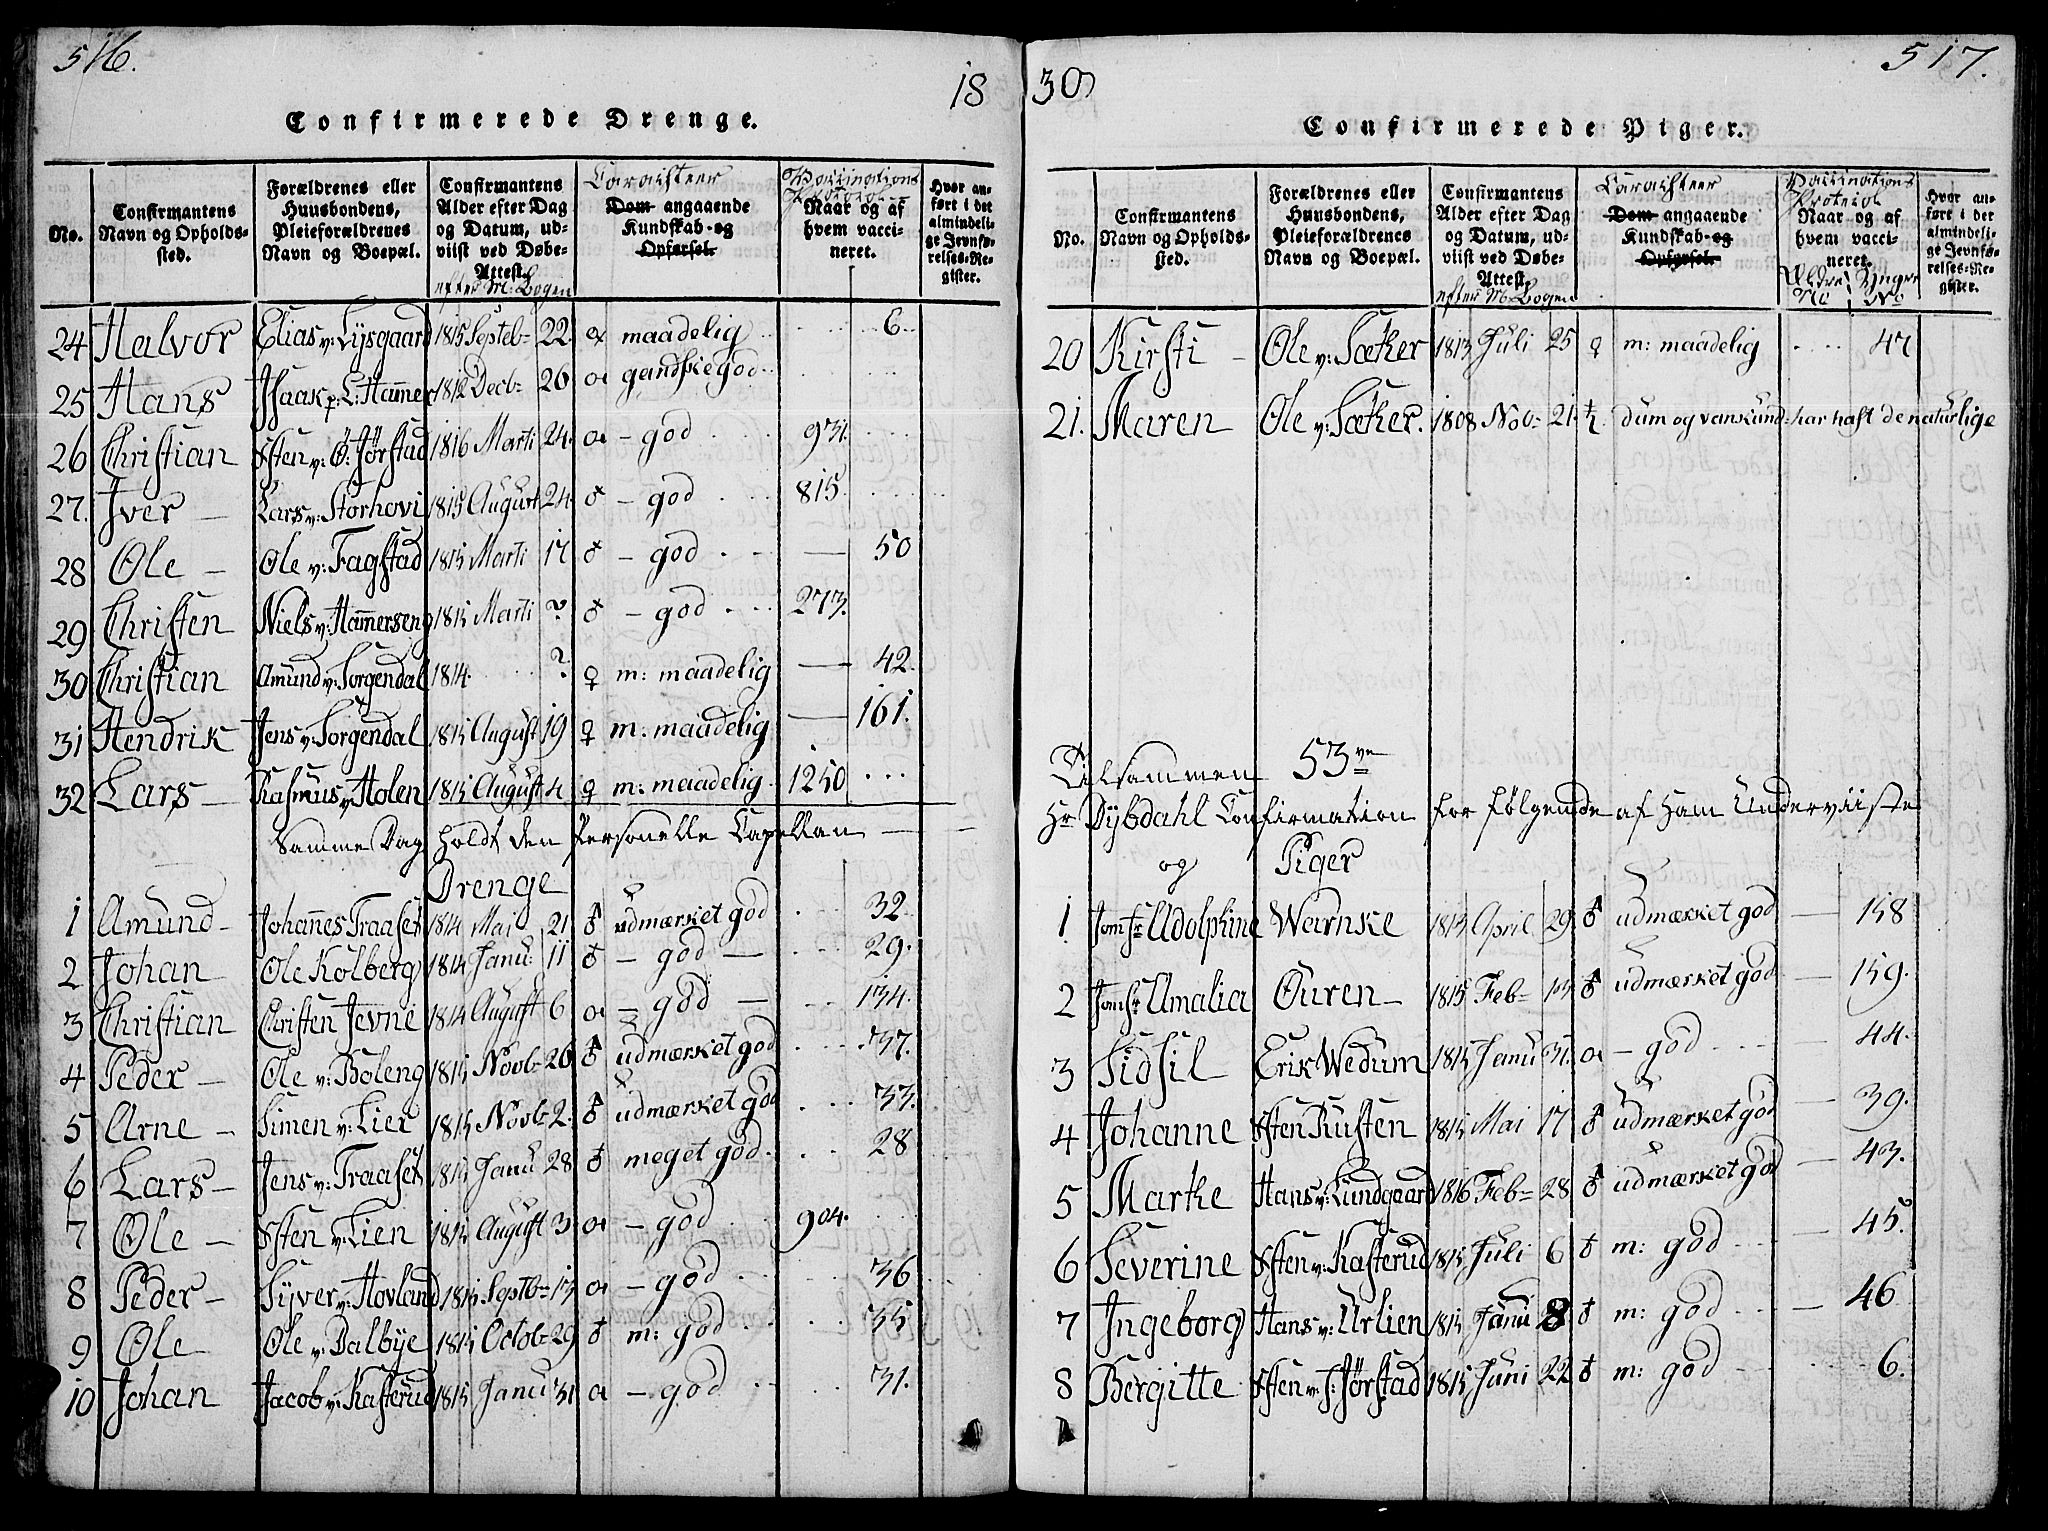 516.
18
Confirmerede Drenge.
No.
Confirmantens Navn og Opholdssted.
Forældrenes eller Huusbondens, Pleieforældrenes Navn og Boepæl.
Confirmantens Alder efter Dag og Datum, udviist ved Døbe-Attest.
efter M: Bogen
Caracteer
Dom angaaende Kundskab og Opførsel.
Vaccinations
Naar og af hvem vaccineret.
Hvor anført i det almindelige Jevnførelses-Register.
24 Halvor Elias v: Lysgaard 1815 Septeb= 22. maadelig 6
25 Hans Isaak p: L: Hammer 1812 Decb= 26 gandske god
26 Christian Østen v: Ø: Jørstad 1816 Marti 24. — god 931.
27. Iver — Lars v: Storhovi 1815 August 24. ♂ — god 815
28 Ole — Ole v: Fagstad 1815 Marti 17 ♂ — god — 50
29 Christen Niels v: Hammerseng 1815 Marti ? ♂ — god 273.
30 Christian Amund v: Sorgendal 1814. ? ♀ m: maadelig — 42.
31 Hendrik Jens v: Sorgendal 1815 August 19 ♀ m: maadelig — 161.
32 Lars — Rasmus v: Holen 1815 August 4 ♀ m: maadelig 1250
Samme Dag holdt den Personelle Capellan —
Drenge
1 Amund — Johannes Traaset 1814 Mai 21 ♂ udmærket god 32
2 Johan Ole Kolberg 1814 Janu: 11 ♂ — god — 29.
3 Christian Christen Jevne 1814 August 6 — god — 134.
4 Peder — Ole v: Boleng 1815 Novb= 26 ♂ udmærket god 37.
5 Arne — Simen v: Lier 1815 Novb= 2. ♂ udmærket god 33.
6 Lars — Jens v: Traaset 1815 Janu 28 ♂ meget god 28
7 Ole — Østen v: Lien 1815 August 3 — god 904.
8 Peder — Syver v: Hovland 1815 Septb= 13 — god 36
9 Ole Ole v: Dalbye 1815 Octob= 29 ♂ m: god 35
10 Johan Jacob v: Kasterud 1815 Janu 31 — god 31.
30
517.
Confirmerede Piger.
No.
Confirmantens Navn og Opholdssted.
Forældrenes eller Huusbondens, Pleieforældrenes Navn og Boepæl.
Confirmantens Alder efter Dag og Datum, udviist ved Døbe-Attest.
efter M: Bogen
Caracteer
Dom angaaende Kundskab og Opførsel.
Vaccinations Protocol
Naar og af hvem vaccineret.
Ældre No Yngre No
Hvor anført i det almindelige Jevnførelses-Register.
20 Kirsti — Ole v: Sæter 1813 Juli 25 ♀ m: maadelig 47
21. Maren Ole v: Sæter. 1808 Nov= 21. dum og vankund= har haft de naturlige
Tilsammen 53ve
Hr Dybdahl Confirmation for følgende af Ham Underviiste
og Piger
1 Jomfr Adolphine Warnke 1813 April 29. ♂ udmærket god — 158
2 Jomfr Amalia Øuren — 1815 Feb= 13 ♂ udmærket god — 159.
3 Sidsil Erik Wedum 1815 Janu 31. — god — 44.
4 Johanne Østen Rusten 1815 Mai 17 ♂ udmærket god — 39.
5 Marthe Hans v: Lundgaard 1816 Feb= 28 ♂ udmærket god — 43.
6 Severine Østen v: Kasterud 1815 Juli 6 ♂ m: god — 45.
7 Ingeborg Hans v: Urlien 1815 Janu 8 ♂ m: god — 46
8 Bergitte Østen v: Jørstad 1815 Juni 22 ♂ m: god 6.